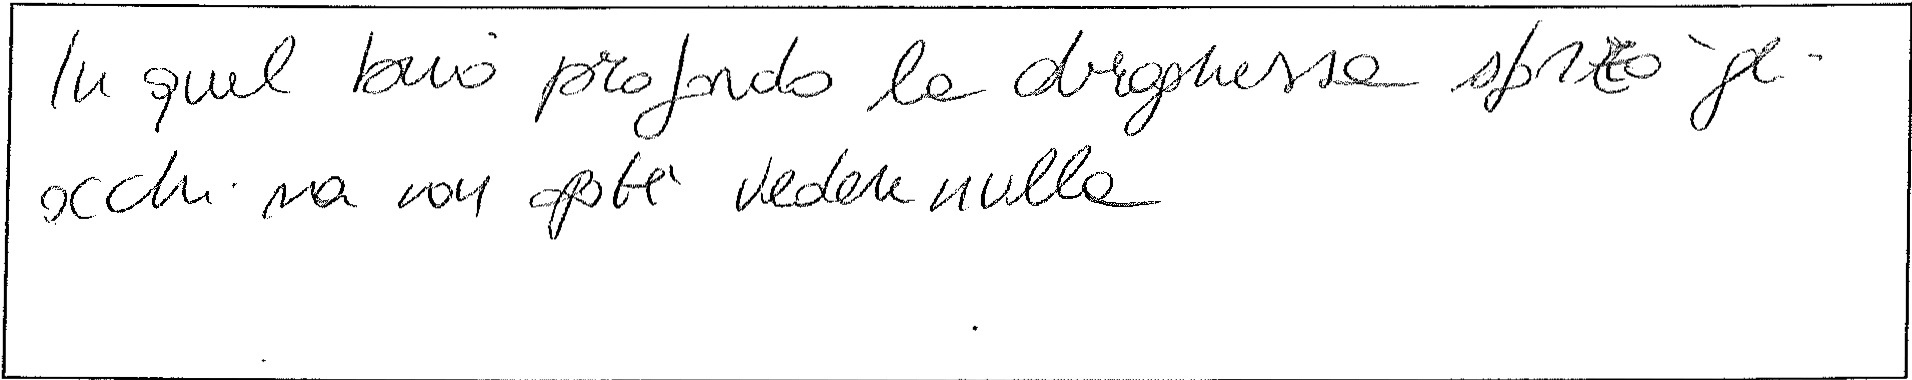 In quel buio profondo la draghessa sprizzò gli
occhi ma non poté vedere nulla